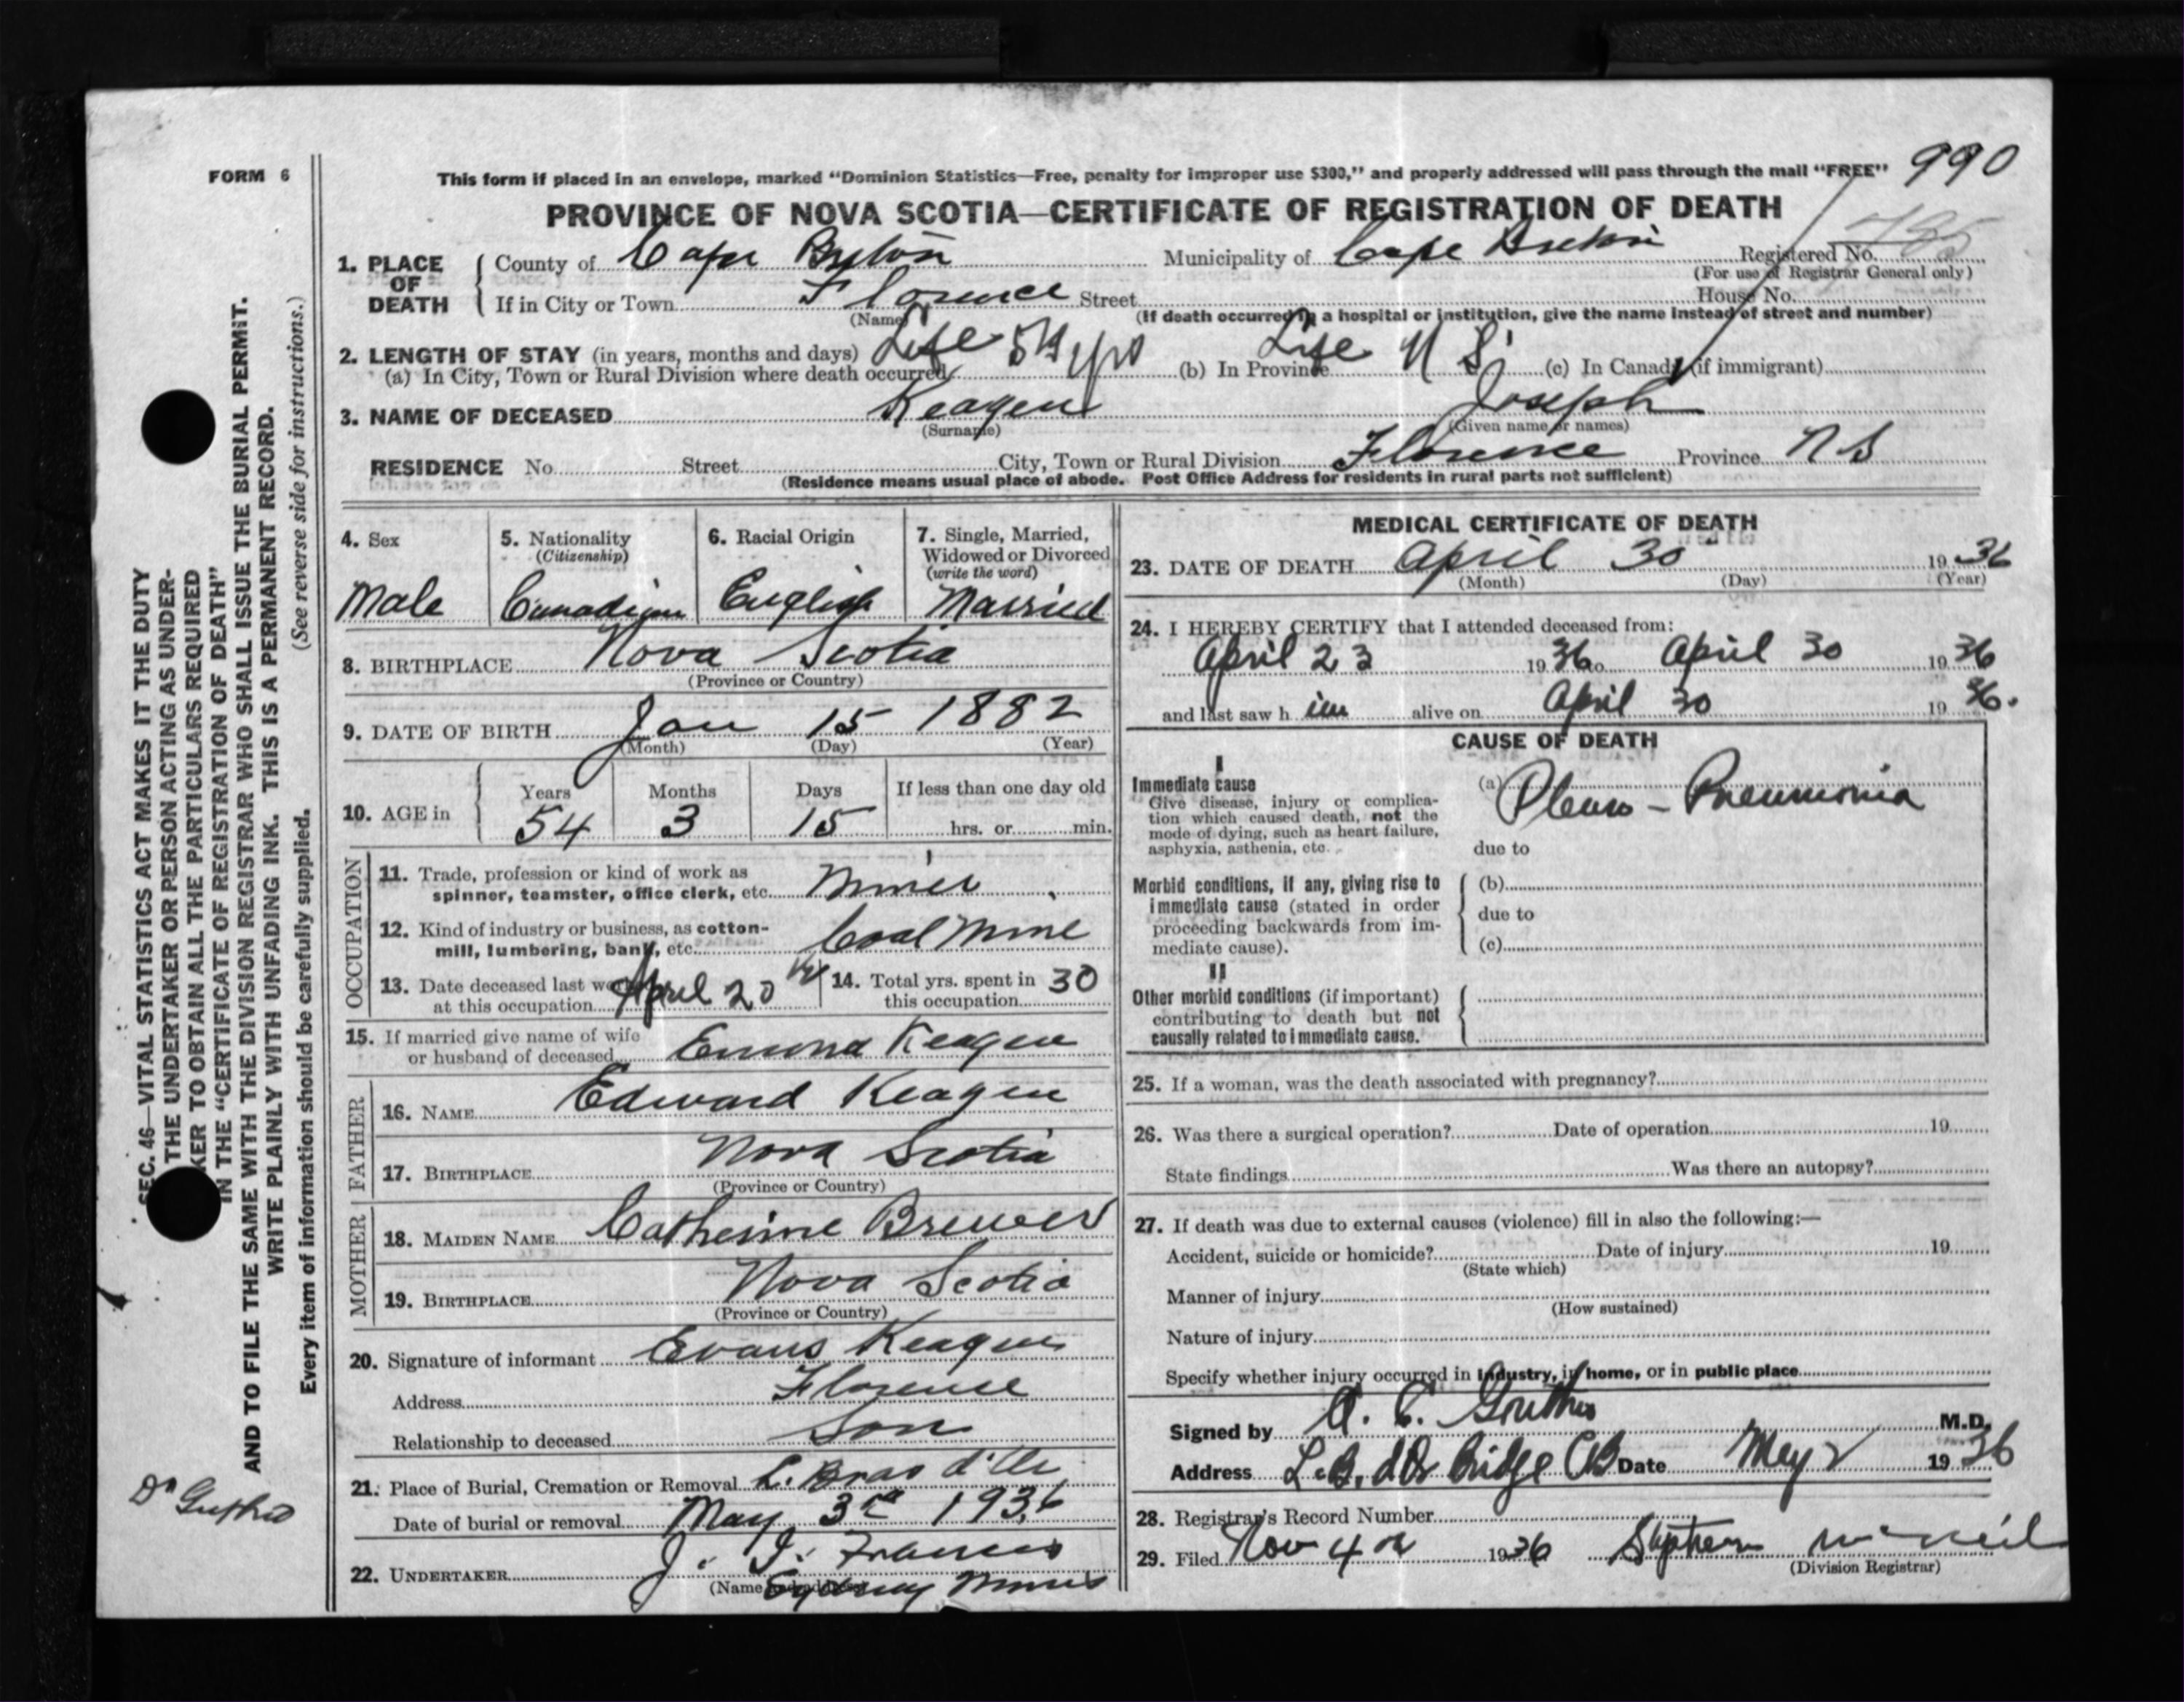 FORM 6
This form if placed in an envelope, marked “Dominion Statistics—Free, penalty for improper use $300,” and properly addressed will pass through the mail “FREE” 990
PROVINCE OF NOVA SCOTIA—CERTIFICATE OF REGISTRATION OF DEATH
785
1. PLACE OF DEATH { County of Cape Breton Municipality of Cape Breton Registered No.
(For use of Registrar General only)
If in City or Town Florence Street House No.
(Name) (If death occurred in a hospital or institution, give the name instead of street and number)
2. LENGTH OF STAY (in years, months and days) Life 54 yrs
(a) In City, Town or Rural Division where death occurred (b) In Province Life N S (c) In Canada (if immigrant)
3. NAME OF DECEASED Keagen Joseph
(Surname) (Given name or names)
RESIDENCE No. Street City, Town or Rural Division Florence Province N S
(Residence means usual place of abode. Post Office Address for residents in rural parts not sufficient)
4. Sex Male
5. Nationality (Citizenship) Canadian
6. Racial Origin English
7. Single, Married, Widowed or Divorced (write the word) Married
8. BIRTHPLACE Nova Scotia
(Province or Country)
9. DATE OF BIRTH Jan 15 1882
(Month) (Day) (Year)
10. AGE in { Years 54 Months 3 Days 15 If less than one day old
hrs. or min.
OCCUPATION
11. Trade, profession or kind of work as
spinner, teamster, office clerk, etc. Miner
12. Kind of industry or business, as cotton-
mill, lumbering, bank, etc. Coal Mine
13. Date deceased last worked
at this occupation April 20
14. Total yrs. spent in
this occupation 30
15. If married give name of wife
or husband of deceased Emma Keagen
FATHER
16. NAME Edward Keagen
17. BIRTHPLACE Nova Scotia
(Province or Country)
MOTHER
18. MAIDEN NAME Catherine Brewer
19. BIRTHPLACE Nova Scotia
(Province or Country)
20. Signature of informant Evans Keagen
Address Florence
Relationship to deceased Son
21. Place of Burial, Cremation or Removal L. Bras d'Or
Date of burial or removal May 3rd 1936
22. UNDERTAKER J. J. Francis
(Name and address) Sydney Mines
MEDICAL CERTIFICATE OF DEATH
23. DATE OF DEATH April 30 1936
(Month) (Day) (Year)
24. I HEREBY CERTIFY that I attended deceased from:
April 23 1936 to April 30 1936
and last saw him alive on April 30 1936.
CAUSE OF DEATH
I
Immediate cause
Give disease, injury or complica-
tion which caused death, not the
mode of dying, such as heart failure,
asphyxia, asthenia, etc.
(a) Pleuro-Pneumonia
due to
Morbid conditions, if any, giving rise to
immediate cause (stated in order
proceeding backwards from im-
mediate cause).
(b)
due to
(c)
II
Other morbid conditions (if important)
contributing to death but not
causally related to immediate cause.
25. If a woman, was the death associated with pregnancy?
26. Was there a surgical operation? Date of operation 19
State findings Was there an autopsy?
27. If death was due to external causes (violence) fill in also the following:—
Accident, suicide or homicide? Date of injury 19
(State which)
Manner of injury
(How sustained)
Nature of injury
Specify whether injury occurred in industry, in home, or in public place
Signed by M.D.
Address Bridge CB Date May 2 1936
28. Registrar's Record Number
29. Filed Nov 4 1936 Stephen McNeil
(Division Registrar)
SEC. 46—VITAL STATISTICS ACT MAKES IT THE DUTY
THE UNDERTAKER OR PERSON ACTING AS UNDER-
KER TO OBTAIN ALL THE PARTICULARS REQUIRED
IN THE “CERTIFICATE OF REGISTRATION OF DEATH”
AND TO FILE THE SAME WITH THE DIVISION REGISTRAR WHO SHALL ISSUE THE BURIAL PERMIT.
WRITE PLAINLY WITH UNFADING INK. THIS IS A PERMANENT RECORD.
Every item of information should be carefully supplied. (See reverse side for instructions.)